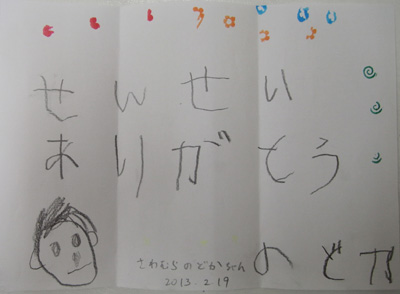 せんせい
ありがとう
のどか
さわむらのどかちゃん
2013.2.19